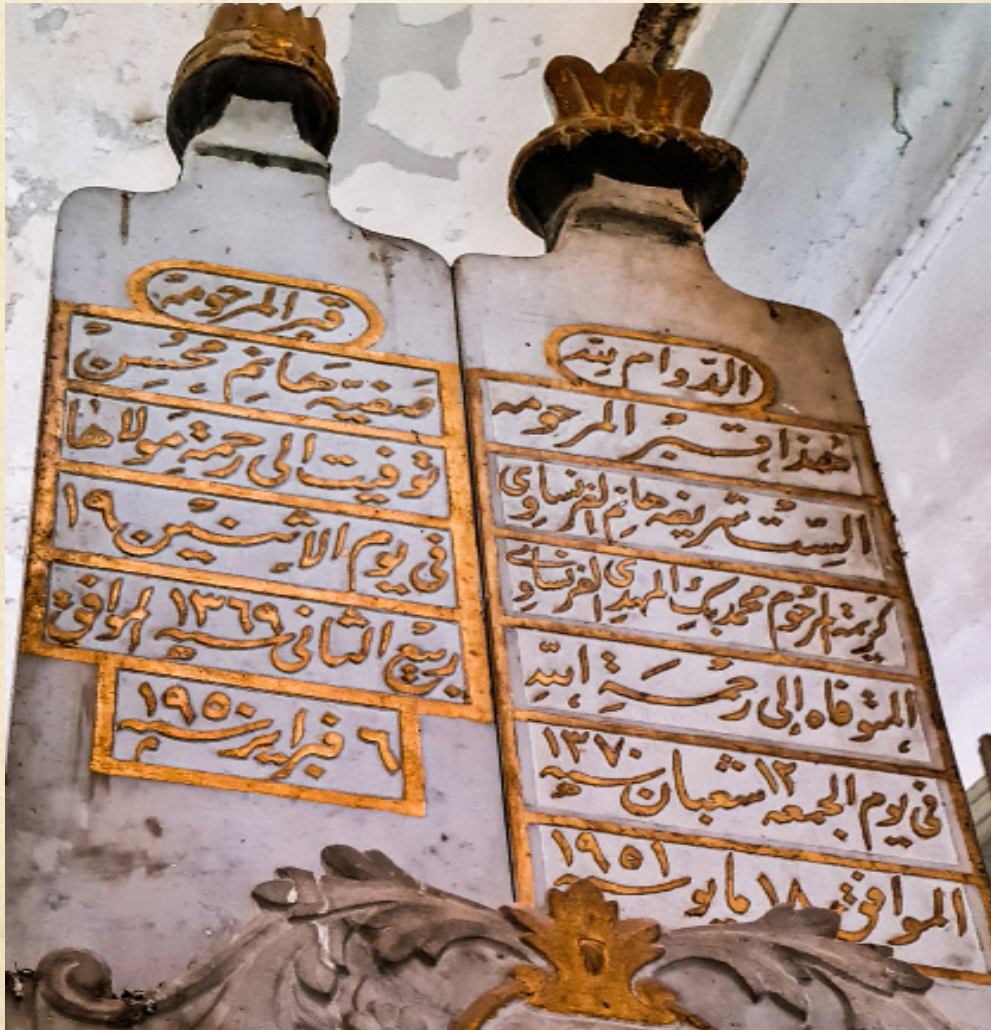 الدوام لله
هذا قبر المرحومه
الست شريفه هانم الفرنساوي
كريمة المرحوم محمد بك المهدي الفرنساوي
المتوفاه إلى رحمة الله
في يوم الجمعه ١٢ شعبان سنة ١٣٧٠
الموافق ١٨ مايو سنة ١٩٥١
قبر المرحومة
صفية هانم محسن
توفيت الى رحمة مولاها
في يوم الاثنين ١٩
ربيع الثاني سنة ١٣٦٩ الموافق
٦ فبراير سنة ١٩٥٠ م